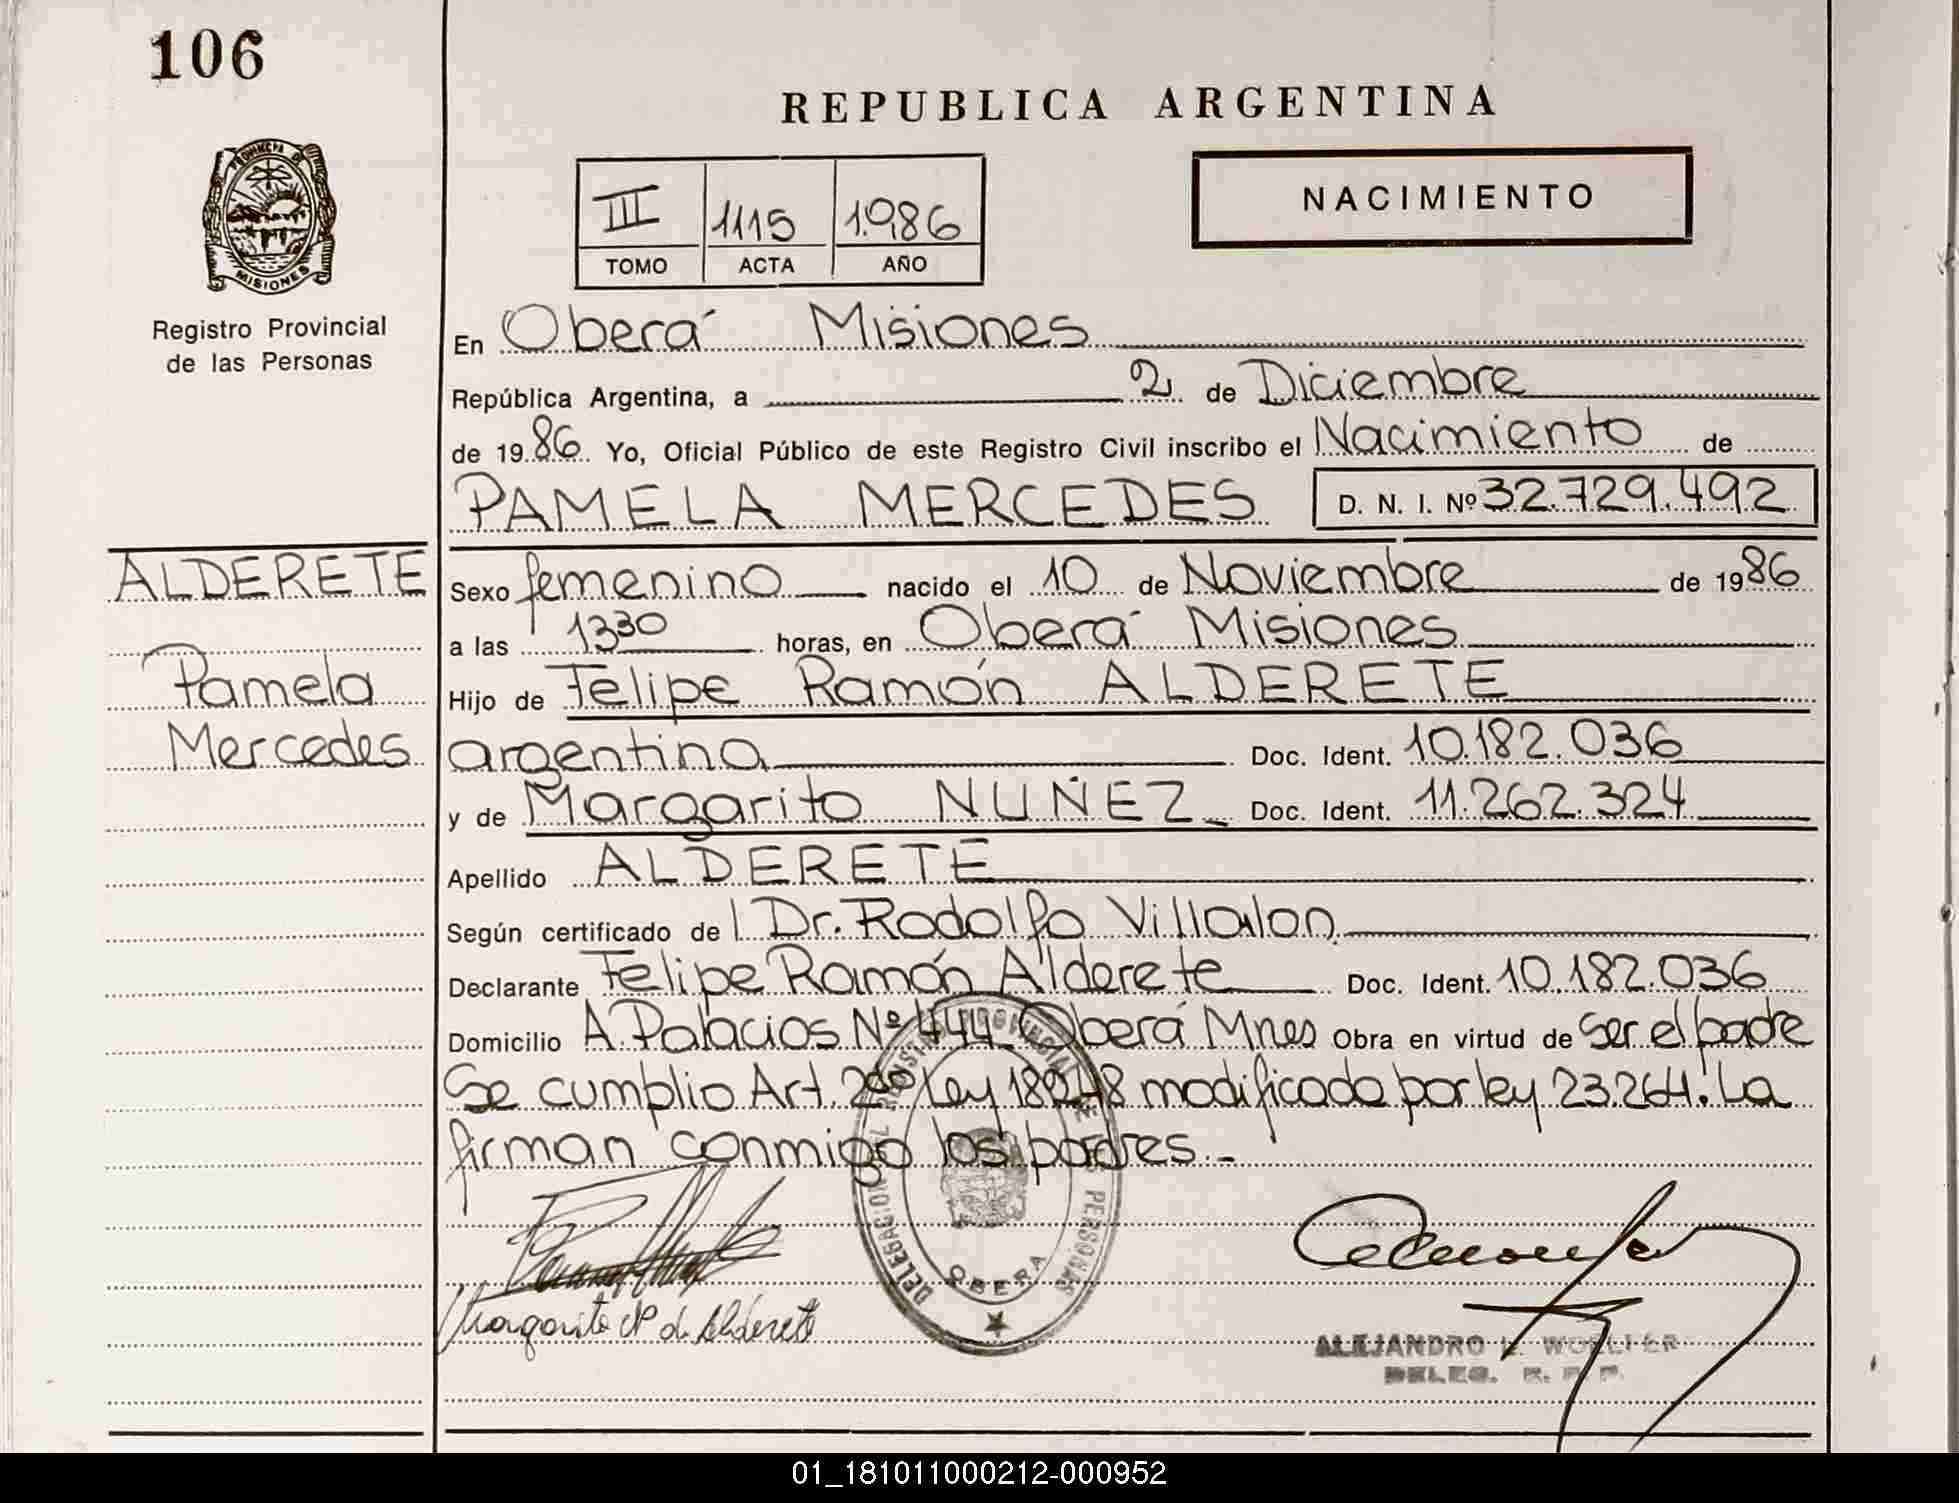 106
REPUBLICA ARGENTINA
PROVINCIA DE
MISIONES
Registro Provincial
de las Personas
III 1115 1.986
TOMO ACTA AÑO
NACIMIENTO
En Oberá Misiones
República Argentina, a 2 de Diciembre
de 1986 Yo, Oficial Público de este Registro Civil inscribo el Nacimiento de
PAMELA MERCEDES D. N. I. Nº 32.729.492
ALDERETE
Pamela
Mercedes
Sexo femenino nacido el 10 de Noviembre de 1986
a las 1330 horas, en Oberá Misiones
Hijo de Felipe Ramón ALDERETE
argentina Doc. Ident. 10.182.036
y de Margarita NUÑEZ Doc. Ident. 11.262.324
Apellido ALDERETE
Según certificado de l Dr. Rodolfo Villalon
Declarante Felipe Ramón Alderete Doc. Ident. 10.182.036
Domicilio A. Palacios Nº 444 Oberá Mnes Obra en virtud de ser el padre
Se cumplio Art. 2do Ley 18248 modificada por ley 23.264. La
firman conmigo los padres.-
DELEGACION REGISTRO PROVINCIAL DE LAS PERSONAS
OBERA
Margarita N de Alderete
ALEJANDRO WOELFER
DELEG. R. P. P.
01_181011000212-000952